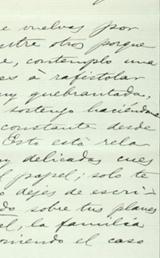 e vuelvas por
entre otros porque
e, contemplo una
es a rafistolar
uy quebrantada,
sostengo haciéndome
constante desde
Esto esta rela
y delicadas cues
l papel; solo te
o dejes de escri-
do sobre tus planes
el, la familia
oniendo el caso